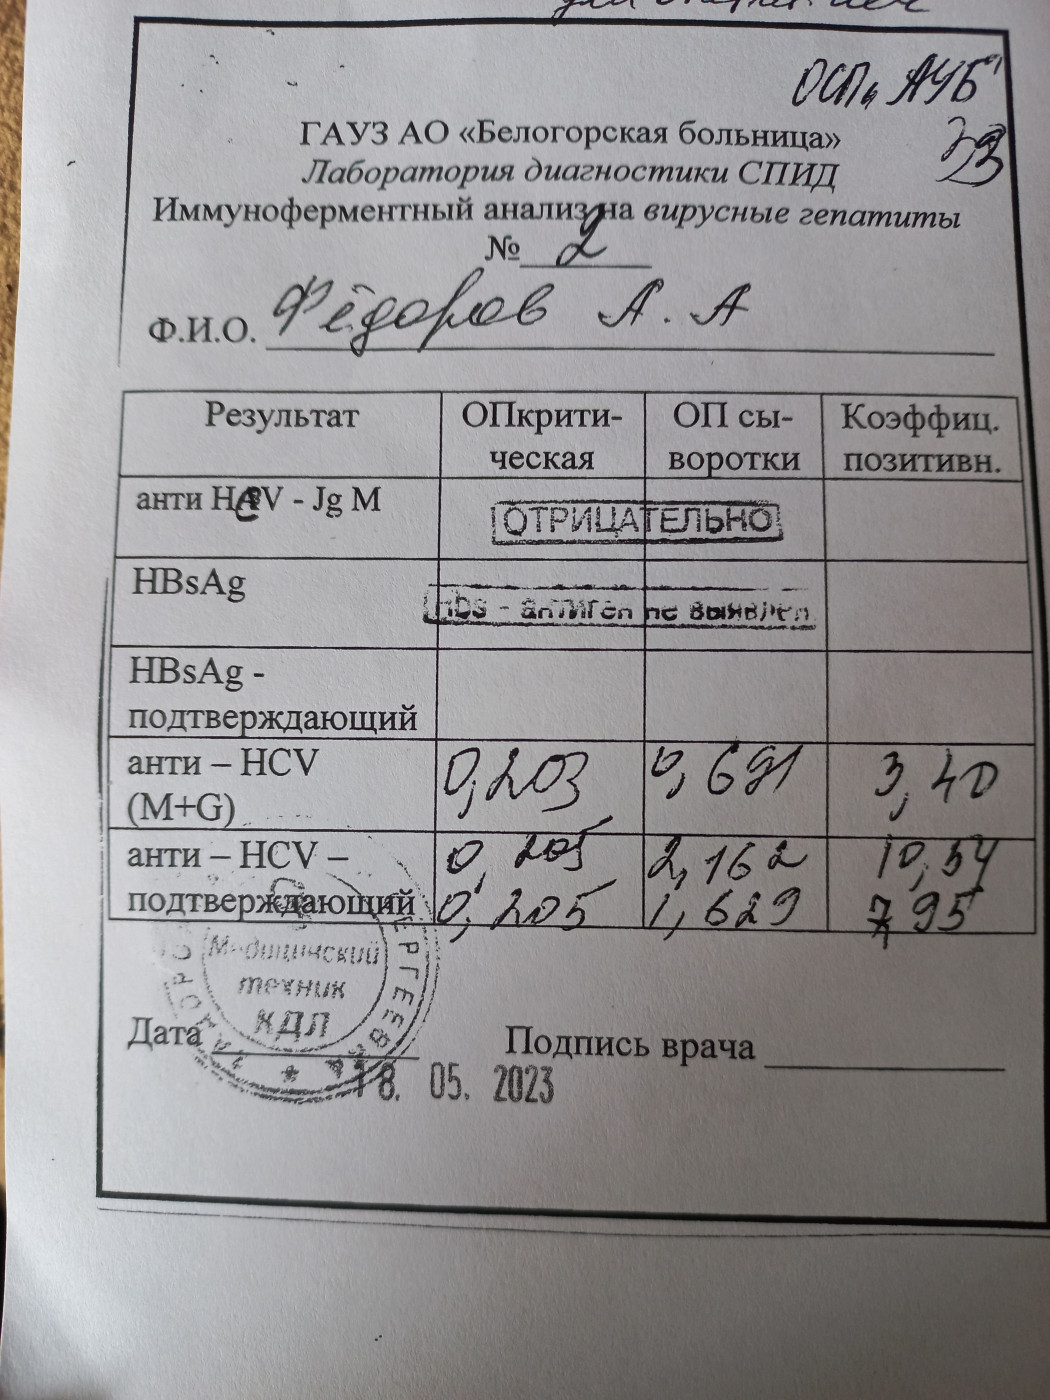 ОСП, АЧБ
ГАУЗ АО «Белогорская больница»
Лаборатория диагностики СПИД
Иммуноферментный анализ на вирусные гепатиты
№ 2
Ф.И.О. Фёдоров А. А
Результат ОПкрити-ческая ОП сы-воротки Коэффиц. позитивн.
анти HAV - Jg M ОТРИЦАТЕЛЬНО
HBsAg Hbs - антиген не выявлен
HBsAg -
подтверждающий
анти – HCV 0,203 0,691 3,40
(M+G)
анти – HCV – 0,205 2,162 10,54
подтверждающий 0,205 1,629 7,95
Медицинский
техник
КДЛ
Дата Подпись врача
18. 05. 2023